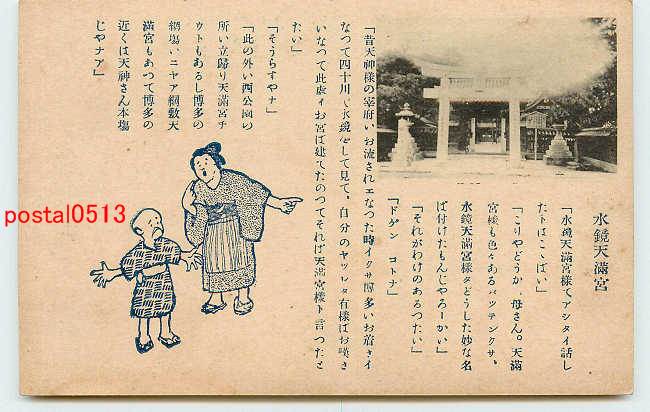 水鏡天滿宮
「水鏡天滿宮樣てアシタイ話し
たトはこゝばい」
「こりやどうか、母さん。天滿
宮樣も色々あるバツテンクサ、
水鏡天滿宮樣タどうした妙な名
ば付けたもんじやろーかい」
「それがわけのあるつたい」
「ドゲン コトナ」
「昔天神樣の宰府いお流されエなつた時イクサ博多いお着きイ
なつて四十川で水鏡をして見て、自分のヤツレタ有樣ばお嘆き
いなつて此處イお宮ば建てたのつてそれば天滿宮樣ト言つたと
たい」
「そうらすやナ」
「此の外い西公園の
所い立歸り天滿宮チ
ウトもあるし博多の
網場いニヤア綱敷天
滿宮もあつて博多の
近くは天神さん本場
じやナア」
postal0513